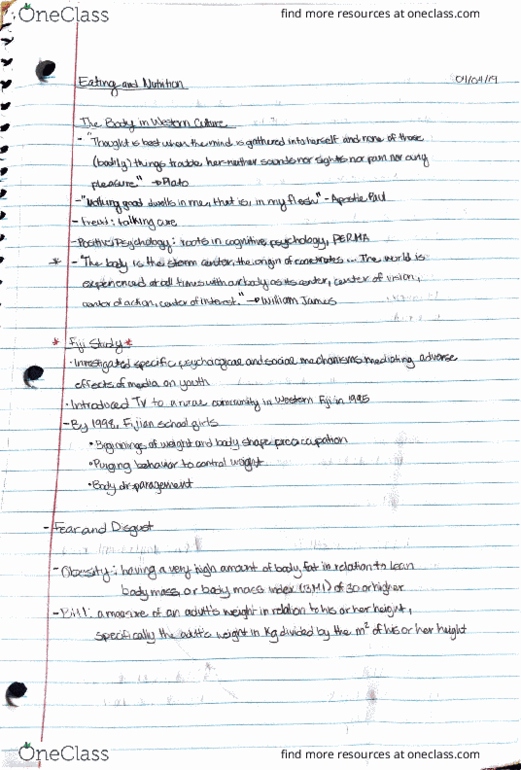 OneClass find more resources at oneclass.com
Eating and Nutrition 01/04/19
The Body in Western Culture
- "Thought is best when the mind is gathered into herself and none of those
(bodily) things trouble her-neither sounds nor sights nor pain nor any
pleasure." → Plato
- "Nothing good dwells in me, that is, in my flesh." - Apostle Paul
- Freud: talking cure
- Positive Psychology: roots in cognitive psychology, PERMA
* - "The body is the storm center, the origin of coordinates... The world is
experienced at all times with our body as its center, center of vision,
center of action, center of interest." → William James
* Fiji Study *
- Investigated specific psychological and social mechanisms mediating adverse
effects of media on youth
- Introduced TV to a rural community in Western Fiji in 1995
- By 1998, Fijian school girls
• Beginnings of weight and body shape preoccupation
• Purging behavior to control weight
• Body disparagement
- Fear and Disgust
- Obesity: having a very high amount of body fat in relation to lean
body mass, or body mass index (BMI) of 30 or higher
- BMI: a measure of an adult's weight in relation to his or her height,
specifically the adult's weight in kg divided by the m² of his or her height
OneClass find more resources at oneclass.com